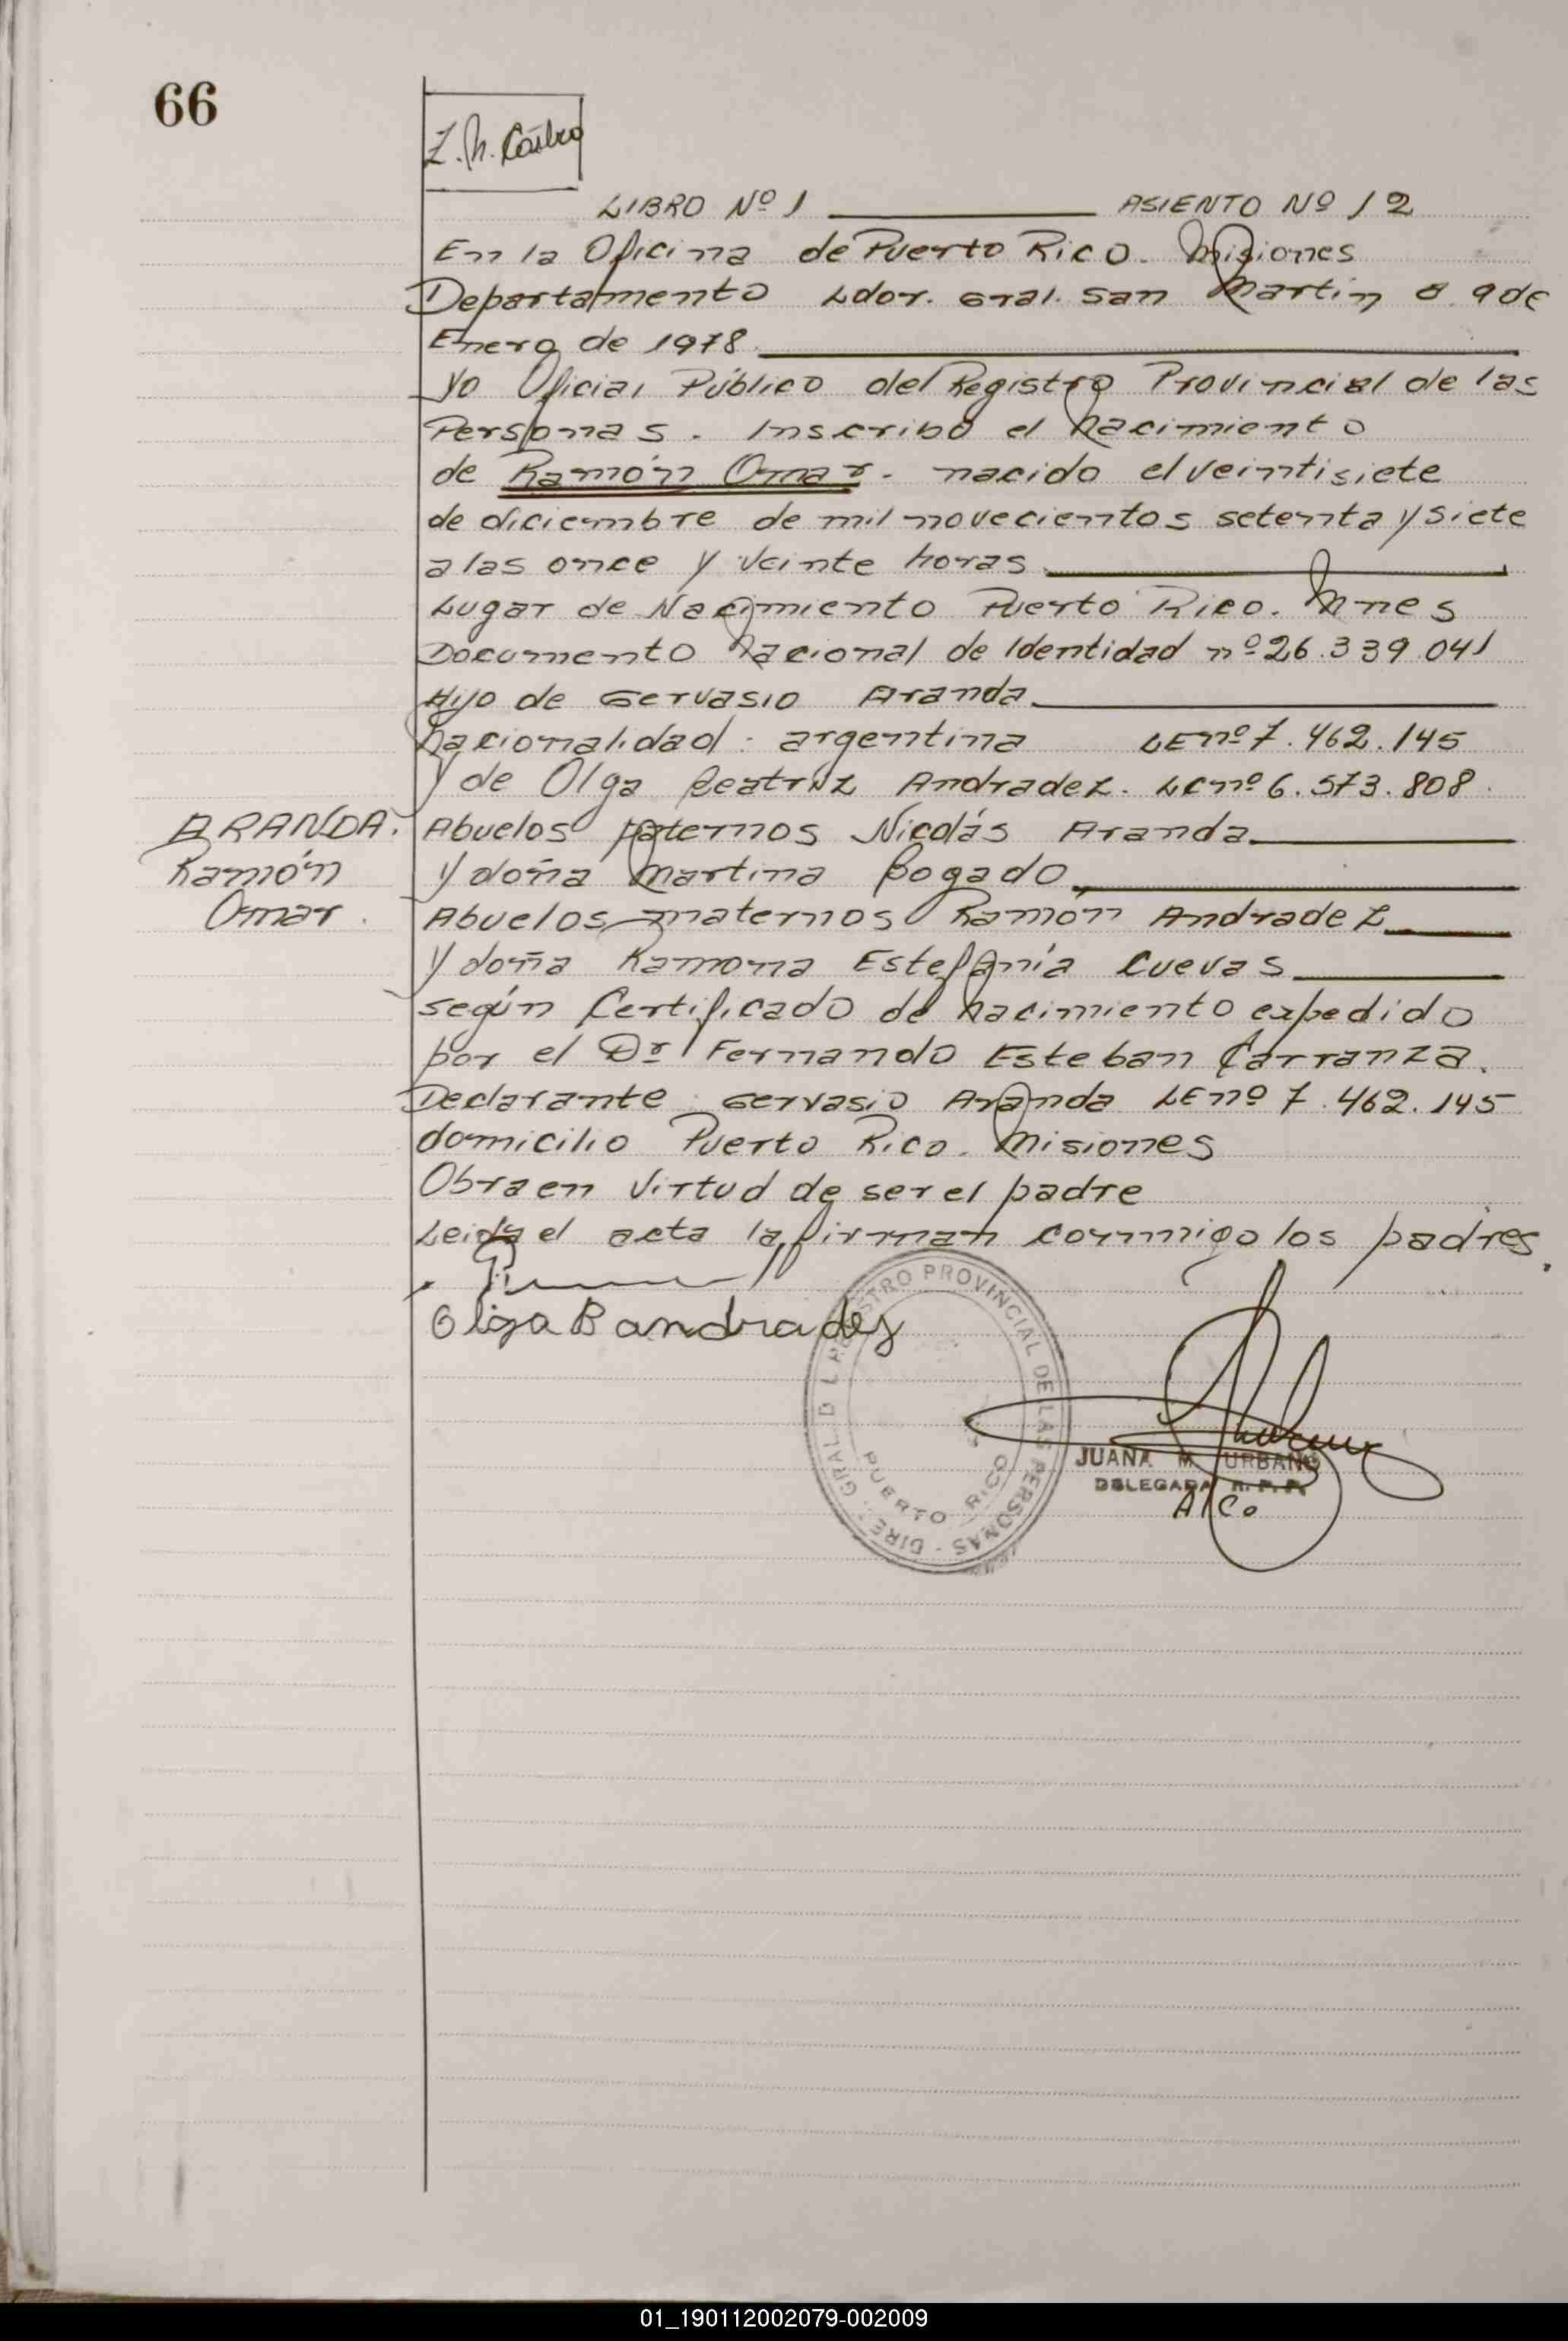 66
Z. N. Castro
LIBRO Nº 1 ASIENTO Nº 12
En la Oficina de Puerto Rico. Misiones
Departamento Ldor. Gral. San Martín a 9 de
Enero de 1978.
Yo Oficial Público del Registro Provincial de las
Personas. Inscribo el Nacimiento
de Ramón Omar - nacido el veintisiete
de diciembre de mil novecientos setenta y siete
a las once y veinte horas.
Lugar de Nacimiento Puerto Rico. Mnes
Documento Nacional de Identidad nº 26.339.041
Hijo de Gervasio Aranda
Nacionalidad. argentina LE nº 7.462.145
y de Olga Beatríz Andradez. LC nº 6.573.808.
ARANDA.
Ramón
Omar.
Abuelos paternos Nicolás Aranda
y doña Martina Bogado
Abuelos maternos Ramón Andradez
y doña Ramona Estefanía Cuevas
según Certificado de Nacimiento expedido
por el Dr Fernando Esteban Carranza.
Declarante Gervasio Aranda LE nº 7.462.145
domicilio Puerto Rico. Misiones
Obra en Virtud de ser el padre
Leida el acta la firman conmigo los padres.
Olga B andradez
DIRE. GRAL. D L REGISTRO PROVINCIAL DE LAS PERSONAS
PUERTO RICO
JUANA M. URBANO
DELEGADA R. P. P.
A/Co
01_190112002079-002009